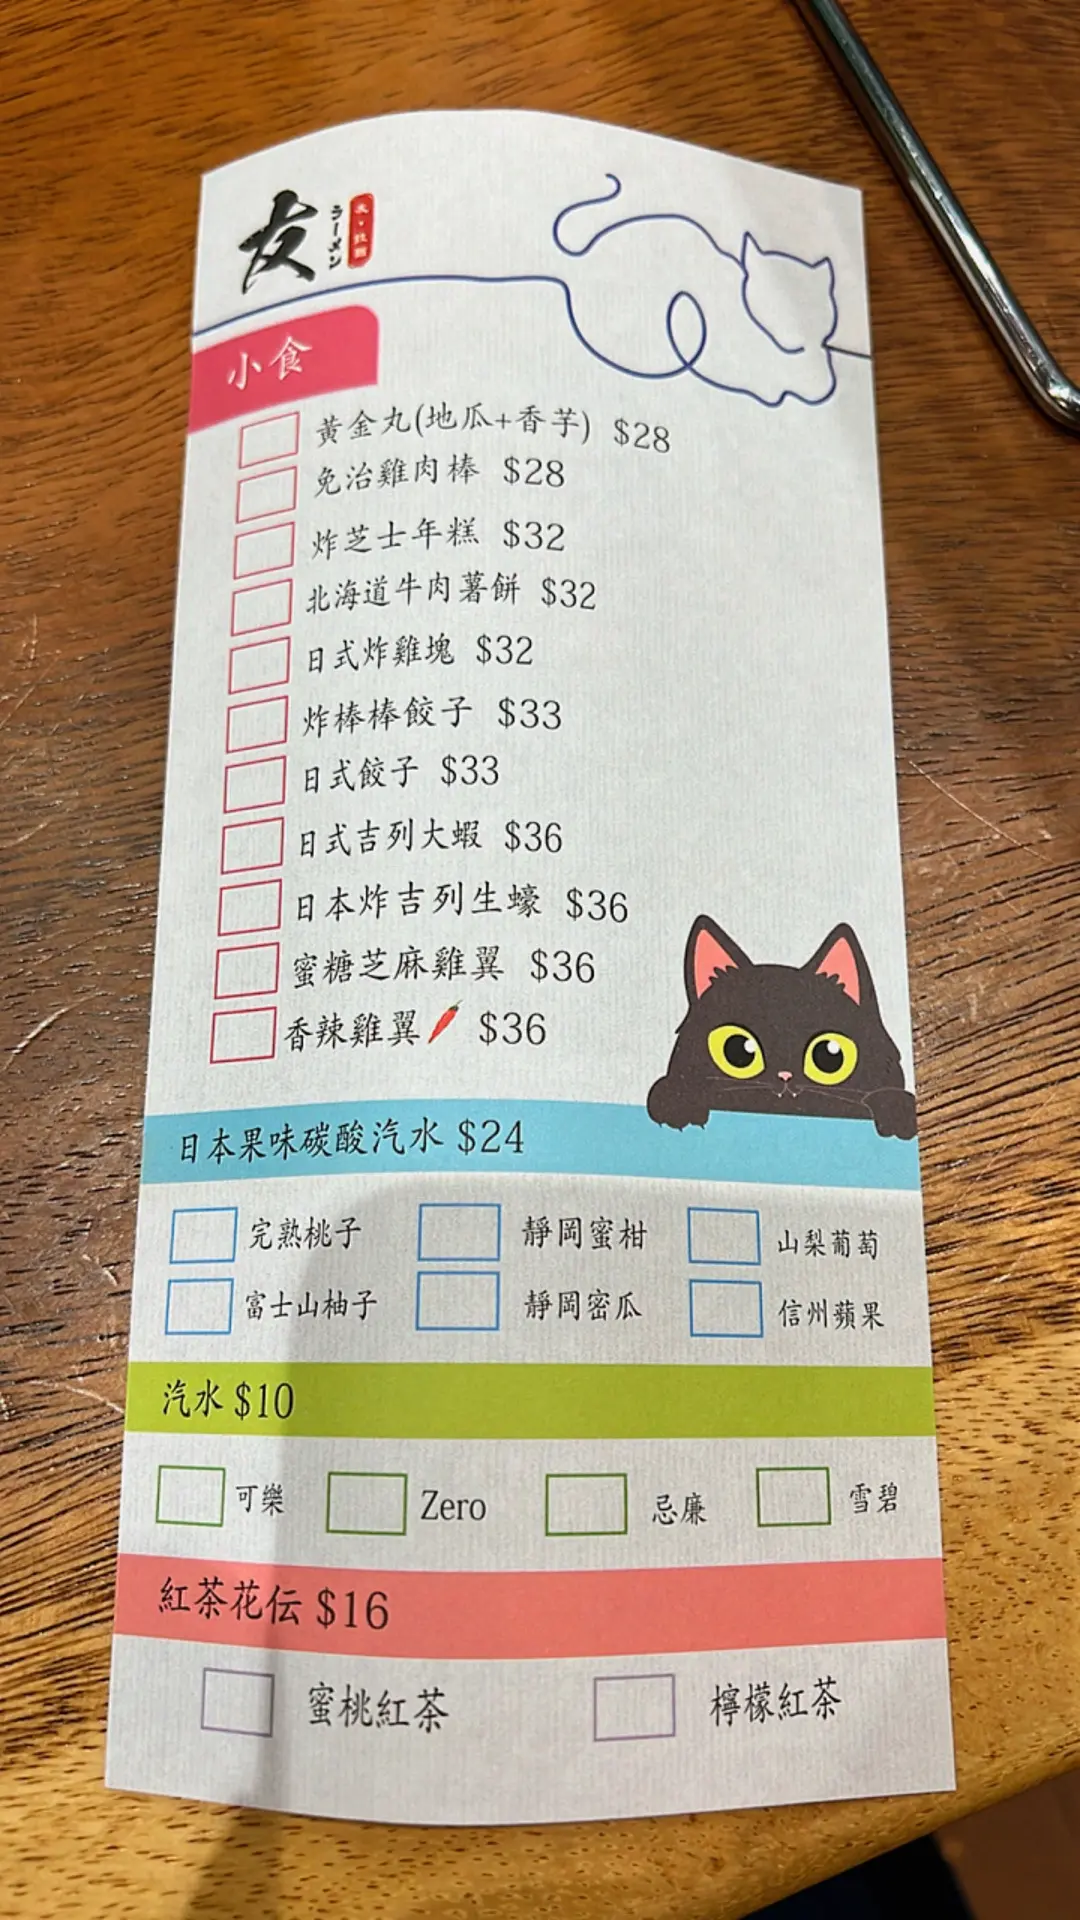 友
ラーメン
小食
黃金丸(地瓜+香芋) $28
免治雞肉棒 $28
炸芝士年糕 $32
北海道牛肉薯餅 $32
日式炸雞塊 $32
炸棒棒餃子 $33
日式餃子 $33
日式吉列大蝦 $36
日本炸吉列生蠔 $36
蜜糖芝麻雞翼 $36
香辣雞翼 $36
日本果味碳酸汽水 $24
完熟桃子 靜岡蜜柑 山梨葡萄
富士山柚子 靜岡密瓜 信州蘋果
汽水 $10
可樂 Zero 忌廉 雪碧
紅茶花伝 $16
蜜桃紅茶 檸檬紅茶